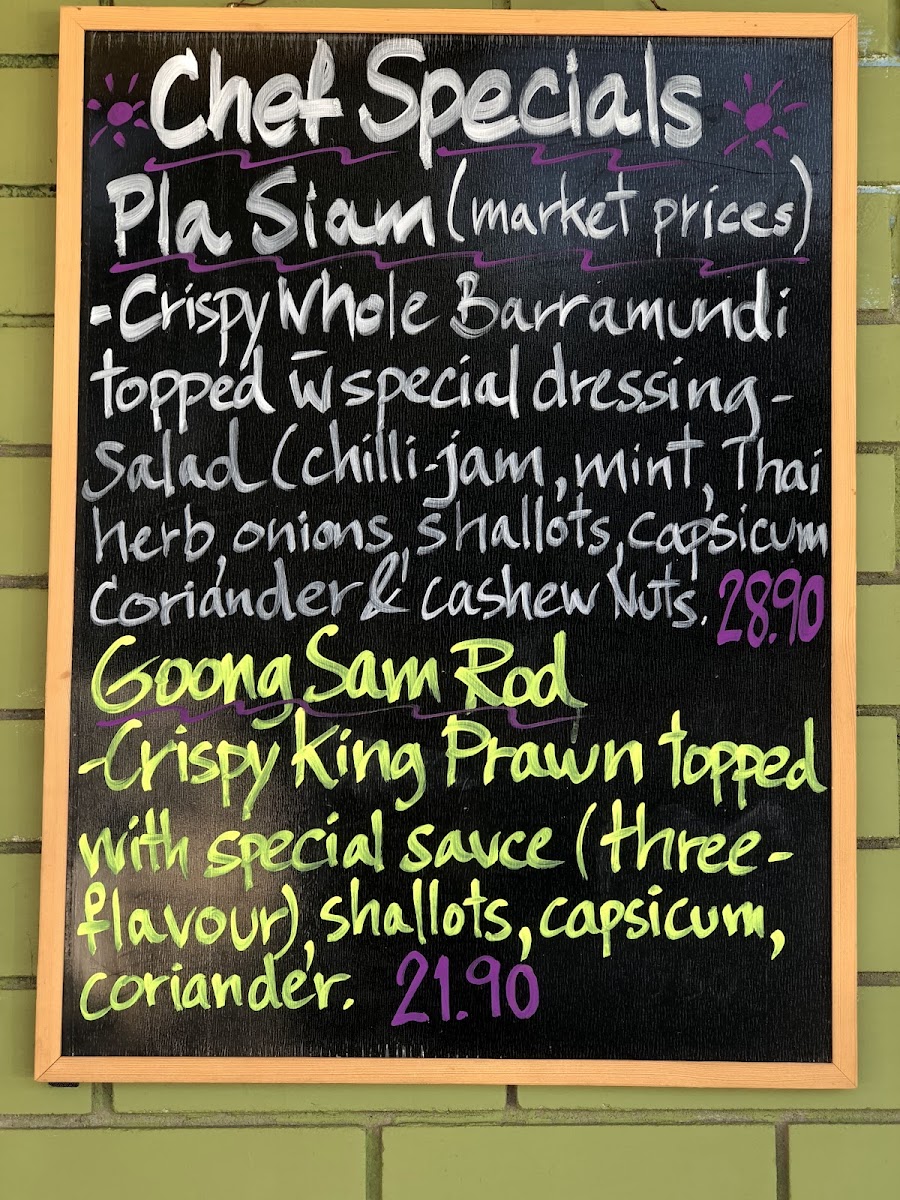 Chef Specials
Pla Siam (market prices)
-Crispy Whole Barramundi
topped w̄ special dressing-
Salad (chilli-jam, mint, Thai
herb, onions, shallots, capsicum
Coriander & cashew Nuts. 28.90
Goong Sam Rod
-Crispy King Prawn topped
with special sauce (three-
flavour), shallots, capsicum,
coriander. 21.90